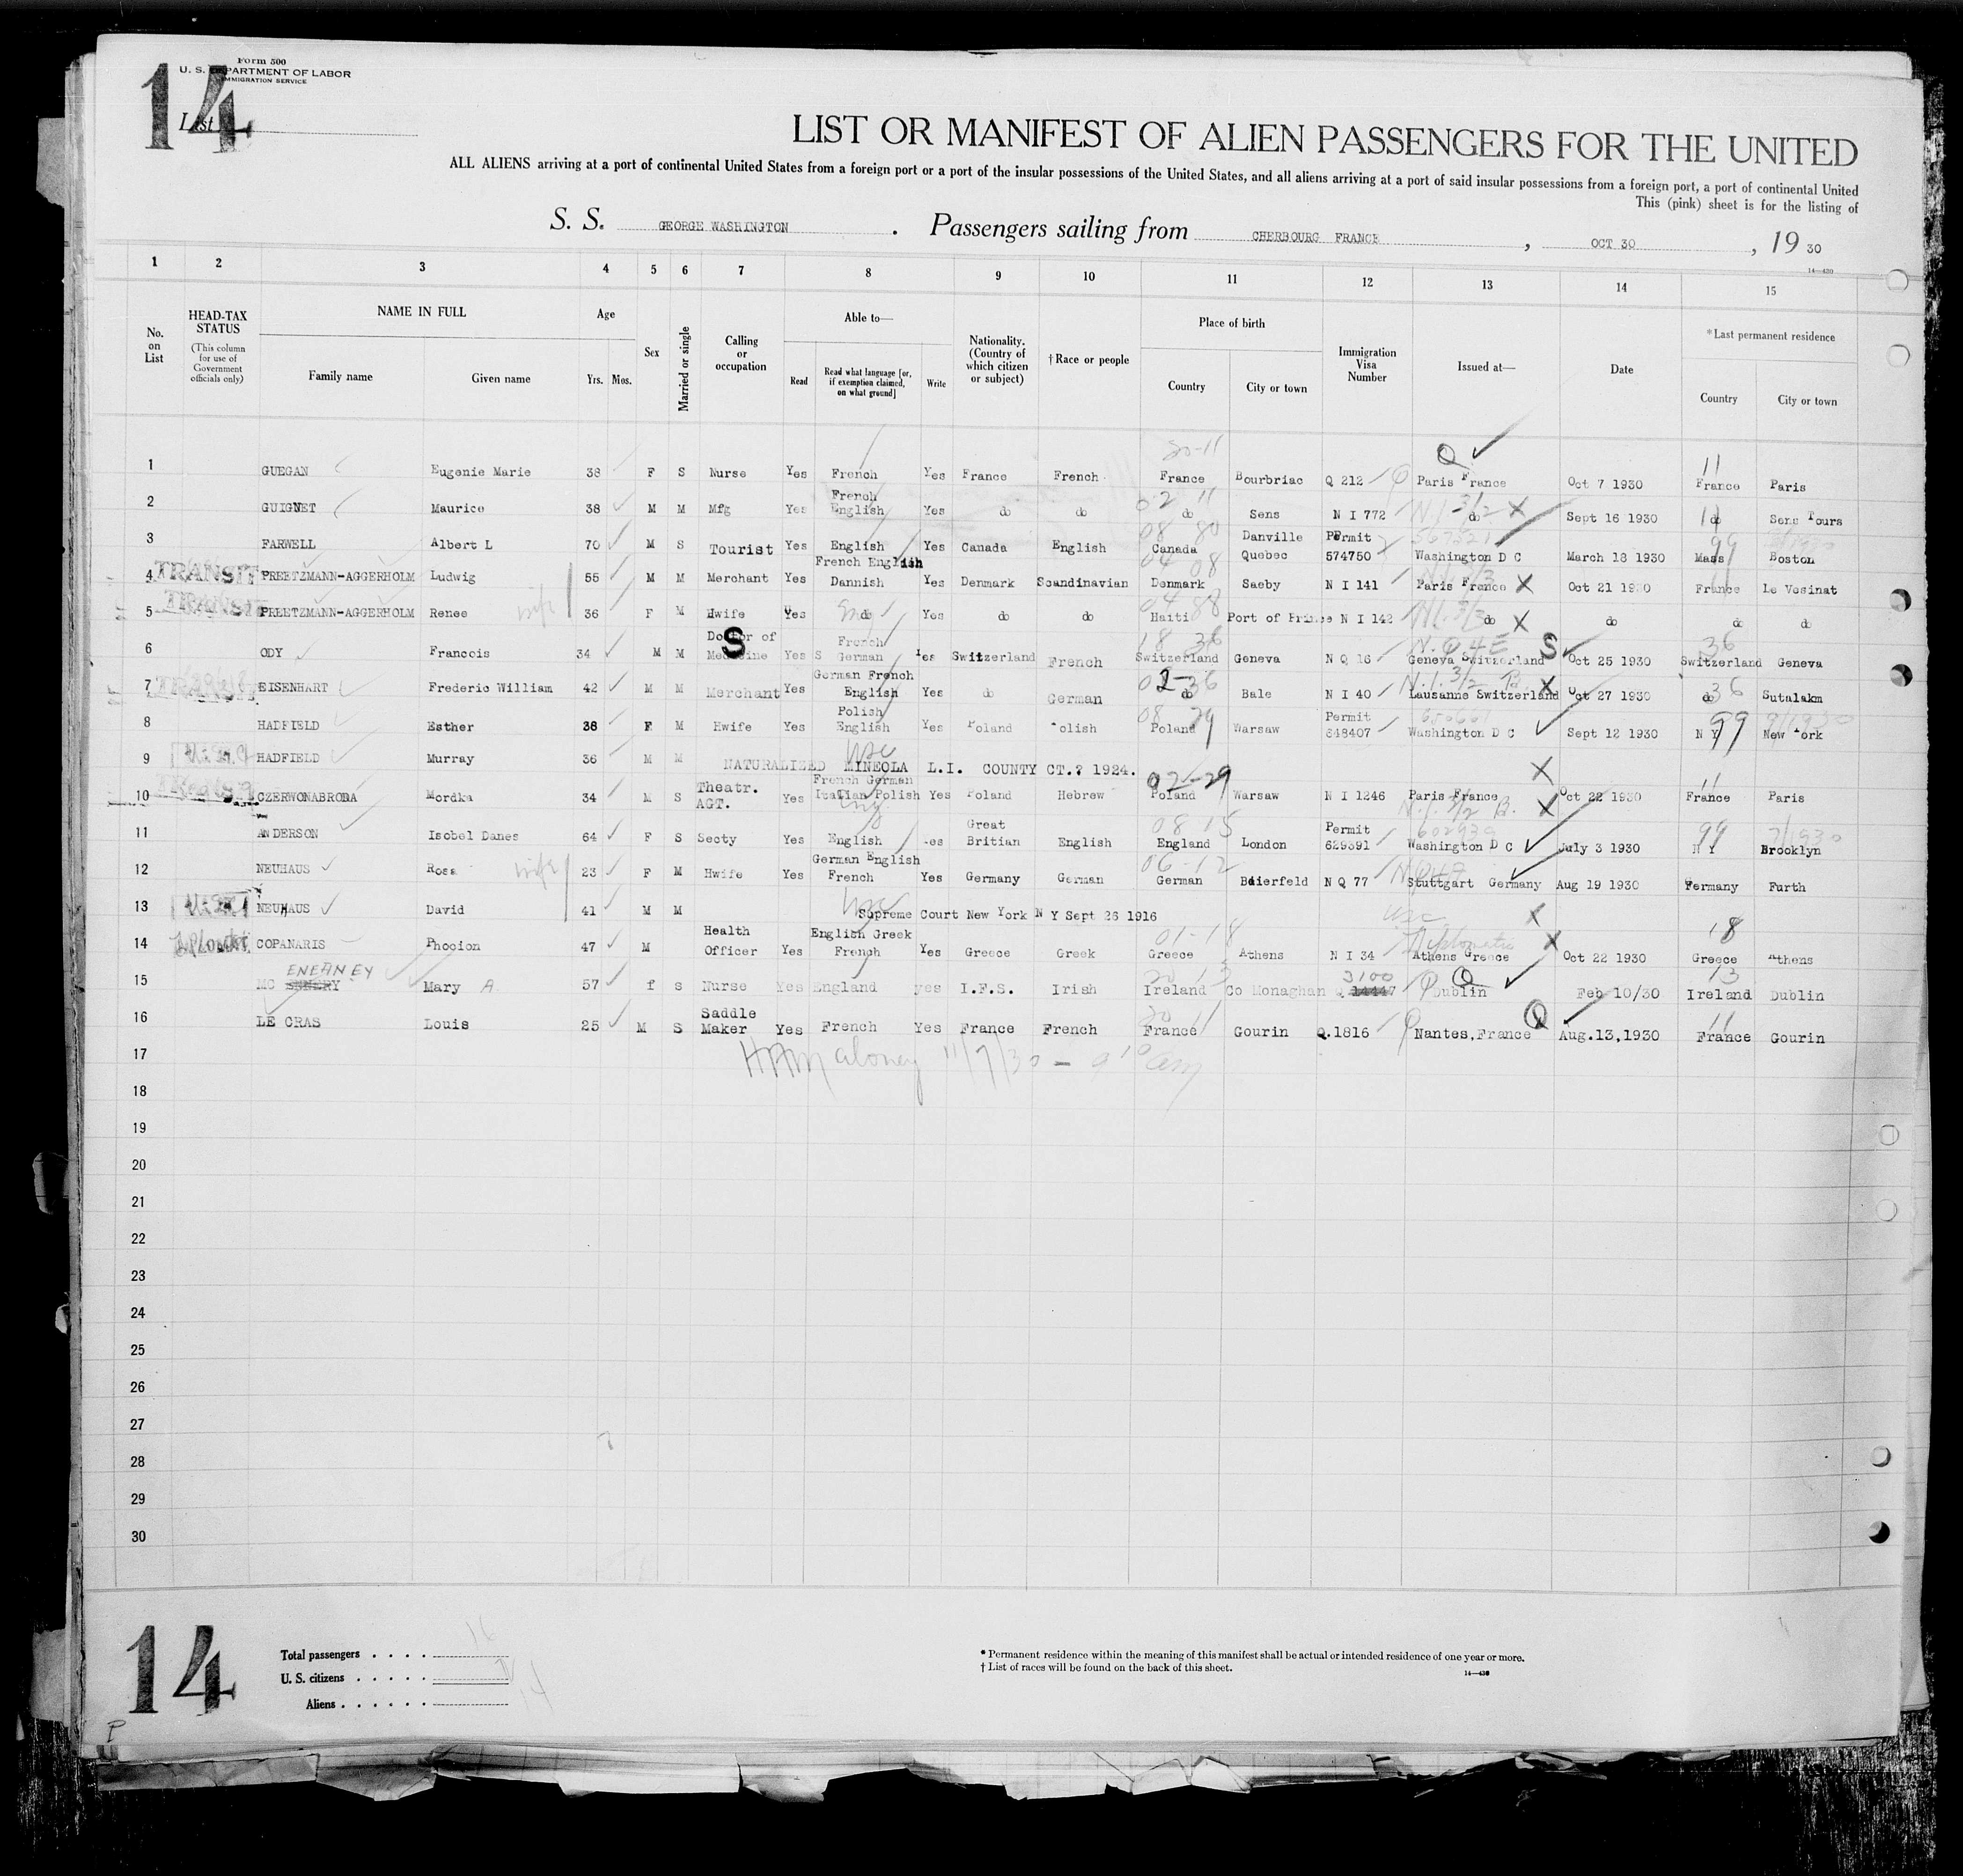 Form 500
U. S. DEPARTMENT OF LABOR
IMMIGRATION SERVICE
14
List
LIST OR MANIFEST OF ALIEN PASSENGERS FOR THE UNITED
ALL ALIENS arriving at a port of continental United States from a foreign port or a port of the insular possessions of the United States, and all aliens arriving at a port of said insular possessions from a foreign port, a port of continental United
This (pink) sheet is for the listing of
S. S. GEORGE WASHINGTON . Passengers sailing from CHERBOURG FRANCE , OCT 30 , 19 30
14—430
1 2 3 4 5 6 7 8 9 10 11 12 13 14 15
No. on List
HEAD-TAX STATUS
(This column for use of Government officials only)
NAME IN FULL
Family name Given name
Age
Yrs. Mos.
Sex
Married or single
Calling or occupation
Able to—
Read
Read what language [or, if exemption claimed, on what ground]
Write
Nationality. (Country of which citizen or subject)
†Race or people
Place of birth
Country City or town
Immigration Visa Number
Issued at—
Date
*Last permanent residence
Country City or town
20-11 Q 11
1 GUEGAN Eugenie Marie 38 F S Nurse Yes French Yes France French France Bourbriac Q 212 Paris France Oct 7 1930 France Paris
French 02 11 N I 3/2 X
2 GUIGNET Maurice 38 M M Mfg Yes English Yes do do do Sens N I 772 do Sept 16 1930 do Sens Tours
08 80 Danville Permit 99
3 FARWELL Albert L 70 M S Tourist Yes English Yes Canada English Canada Quebec 574750 Washington D C March 18 1930 Mass Boston
French English 04 08
4 TRANSIT PREETZMANN-AGGERHOLM Ludwig 55 M M Merchant Yes Dannish Yes Denmark Scandinavian Denmark Saeby N I 141 Paris France X Oct 21 1930 France Le Vesinat
04 88
5 TRANSIT PREETZMANN-AGGERHOLM Renee wife 36 F M Hwife Yes do Yes do do Haiti Port of Prince N I 142 do X do do do
Doctor of French 18 36 N.Q4E S 36
6 ODY Francois 34 M M Medicine S Yes S German Yes Switzerland French Switzerland Geneva N Q 16 Geneva Switzerland Oct 25 1930 Switzerland Geneva
German French 02-36 N.I.3/2 B.
7 EISENHART Frederic William 42 M M Merchant Yes English Yes do German do Bale N I 40 Lausanne Switzerland X Oct 27 1930 do 36 Sutalakm
Polish 08 29 Permit 99
8 HADFIELD Esther 38 F M Hwife Yes English Yes Poland Polish Poland Warsaw 648407 Washington D C Sept 12 1930 N Y New York
USC
9 HADFIELD Murray 36 M M NATURALIZED MINEOLA L.I. COUNTY CT.? 1924. X
French German 02-29 11
10 CZERWONABRODA Mordka 34 M S Theatr. AGT. Yes Italian Polish Yes Poland Hebrew Poland Warsaw N I 1246 Paris France Oct 22 1930 France Paris
N.I. 3/2 B. X
Great 08 15 Permit 602939 99 7/1930
11 ANDERSON Isobel Danes 64 F S Secty Yes English Yes Britian English England London 629391 Washington D C July 3 1930 N Y Brooklyn
German English 06-12
12 NEUHAUS Rosa wife 23 F M Hwife Yes French Yes Germany German German Baierfeld N Q 77 Stuttgart Germany Aug 19 1930 Fermany Furth
usc usc X
13 NEUHAUS David 41 M M Supreme Court New York N Y Sept 26 1916
Health English Greek 01-18 Diplomatic X 18
14 COPANARIS Phocion 47 M Officer Yes French Yes Greece Greek Greece Athens N I 34 Athens Greece Oct 22 1930 Greece Athens
ENEANEY 20 13 3100 Q 13
15 MC Mary A 57 f s Nurse Yes England yes I.F.S. Irish Ireland Co Monaghan Q Dublin Feb 10/30 Ireland Dublin
Saddle 20 11 Q 11
16 LE CRAS Louis 25 M S Maker Yes French Yes France French France Gourin Q.1816 Nantes, France Aug.13,1930 France Gourin
17 Maloney 11/7/30 — 9 10 am
18
19
20
21
22
23
24
25
26
27
28
29
30
14
Total passengers . . . . 16
U. S. citizens . . . . .
Aliens . . . . . . 14
* Permanent residence within the meaning of this manifest shall be actual or intended residence of one year or more.
† List of races will be found on the back of this sheet.
14—430
P